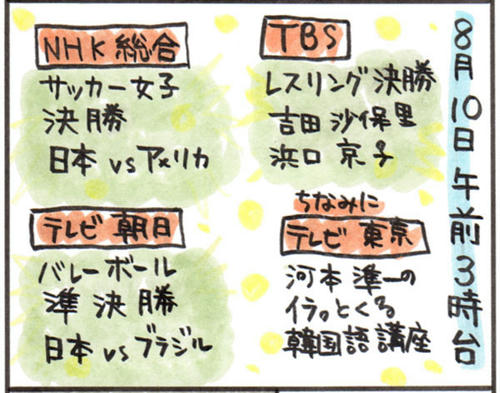 8月10日午前3時台
TBS
レスリング決勝
吉田沙保里
浜口京子
NHK総合
サッカー女子
決勝
日本vsアメリカ
ちなみに
テレビ東京
河本準一の
イラっとくる
韓国語講座
テレビ朝日
バレーボール
準決勝
日本vsブラジル